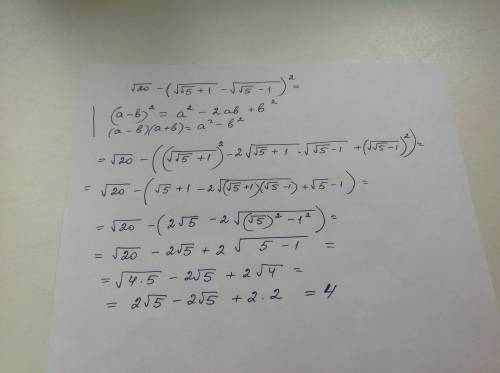 √20 − (√(√5 + 1) − √(√5 − 1))² =
(a − b)² = a² − 2ab + b²
(a − b)(a + b) = a² − b²
= √20 − ((√(√5 + 1))² − 2√(√5 + 1) · √(√5 − 1) + (√(√5 − 1))²) =
= √20 − (√5 + 1 − 2√((√5 + 1)(√5 − 1)) + √5 − 1) =
= √20 − (2√5 − 2√((√5)² − 1²)) =
= √20 − 2√5 + 2√(5 − 1) =
= √(4·5) − 2√5 + 2√4 =
= 2√5 − 2√5 + 2·2 = 4